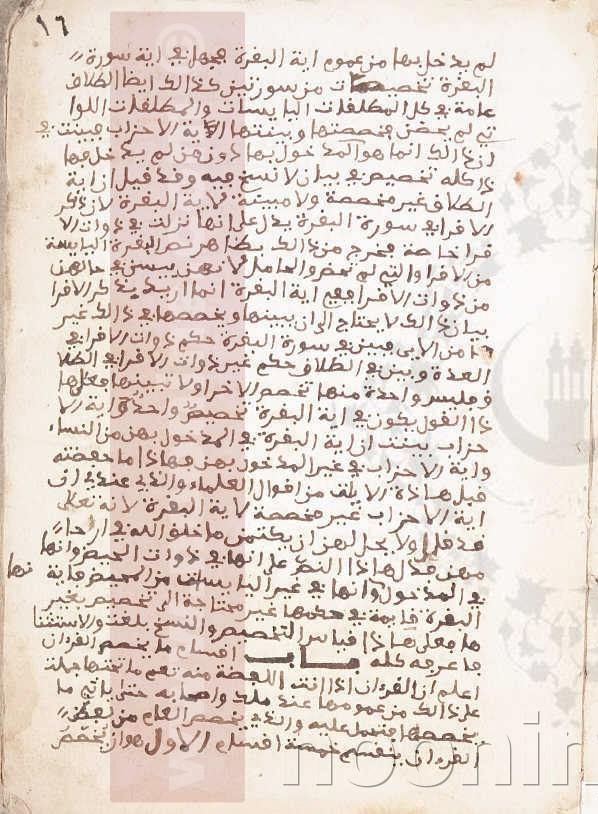 ١٦
لم يدخل بها من عموم اية البقرة فهما في اية سورة
البقرة تخصيصات من سورتين كذالك ايضا الطلاق
عامة في كل المطلقات اليايسات والمطلقات اللوا
تي لم يحضن فخصصتها وبينتها الاية الاحزاب فبينت
ان ذالك انما هو المدخول بها دون من لم يدخل بها
ذاكله تخصيص في بيان لا نسخ فيه وقد قيل ان اية
الطلاق غير مخصصة ولا مبينة لاية البقرة لان ذكر
الاقرا في سورة البقرة يدل على انها نزلت في ذوات الا
قرا خاصة فيخرج من ذالك بظاهر نص البقرة اليايسة
من الاقرا والتي لم تحض والحامل لانهن ليسن في حالهن
من ذوات الاقرا فهم اية البقرة انما اريد بذكر الاقرا
بيان ذالك لا يحتاج الى ان يبينها ويخصصها في ذالك غير
ها من الاي فبين في سورة البقرة حكم ذوات الاقرا في
العدة وبين في الطلاق حكم غير ذوات الاقرا في الطلا
ق فليس واحدة منها تخصص الاخر ولا تبينها فعلى ها
ذا القول يكون في اية البقرة تخصيص واحد اية الا
حزاب بينت ان اية البقرة في المدخول بهن من النساء
واية الاحزاب في غير المدخول بهن فهاذا ما
قيل هاذه الاية من اقوال العلماء والذي عندي ان
اية الاحزاب غير مخصصة لاية البقرة لانه تعالى
قد قال ولا يحل لهن ان يكتمن ما خلق الله في ارحا
مهن فدل هاذا النص على انها في ذوات الحيض وانها
في المدخول وانها في غير اليايسات من المحيض فاية
البقرة قايمة في حكمها غير محتاجة الى تخصيص بغير
ها فعلى هاذا قياس التخصيص والنسخ والاستثنا
فاعرفه كله باب اقسام ما يخصص القرءان
اعلم ان القرءان اذا اتت اللفظة منه تعم ما تحتها حملت
على ذالك من عمومها عند ملك واصحابه حتى ياتي ما
يخصصها فتحمل عليه والذي تخصص العام من لفظ
القرءان ينقسم خمسة اقسام الاول هو ان يخصص